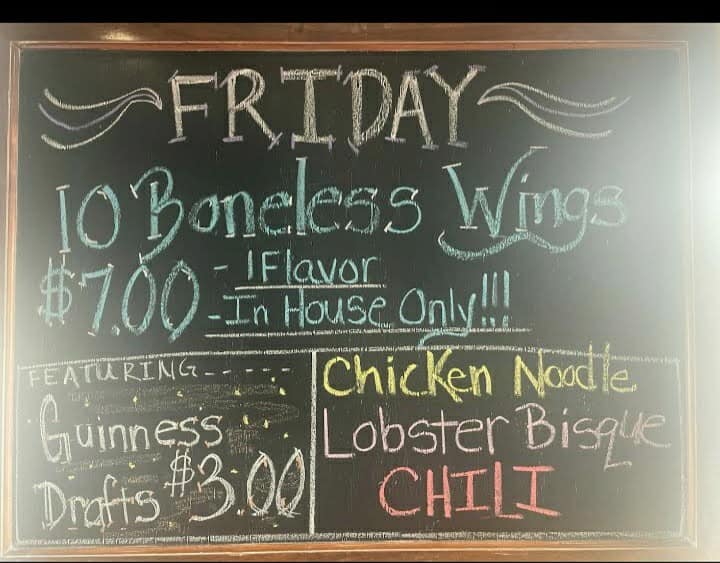 FRIDAY
10 Boneless Wings
$7.00 - 1 Flavor
- In House Only!!!
FEATURING------
Guinness
Drafts $3.00
Chicken Noodle
Lobster Bisque
CHILI